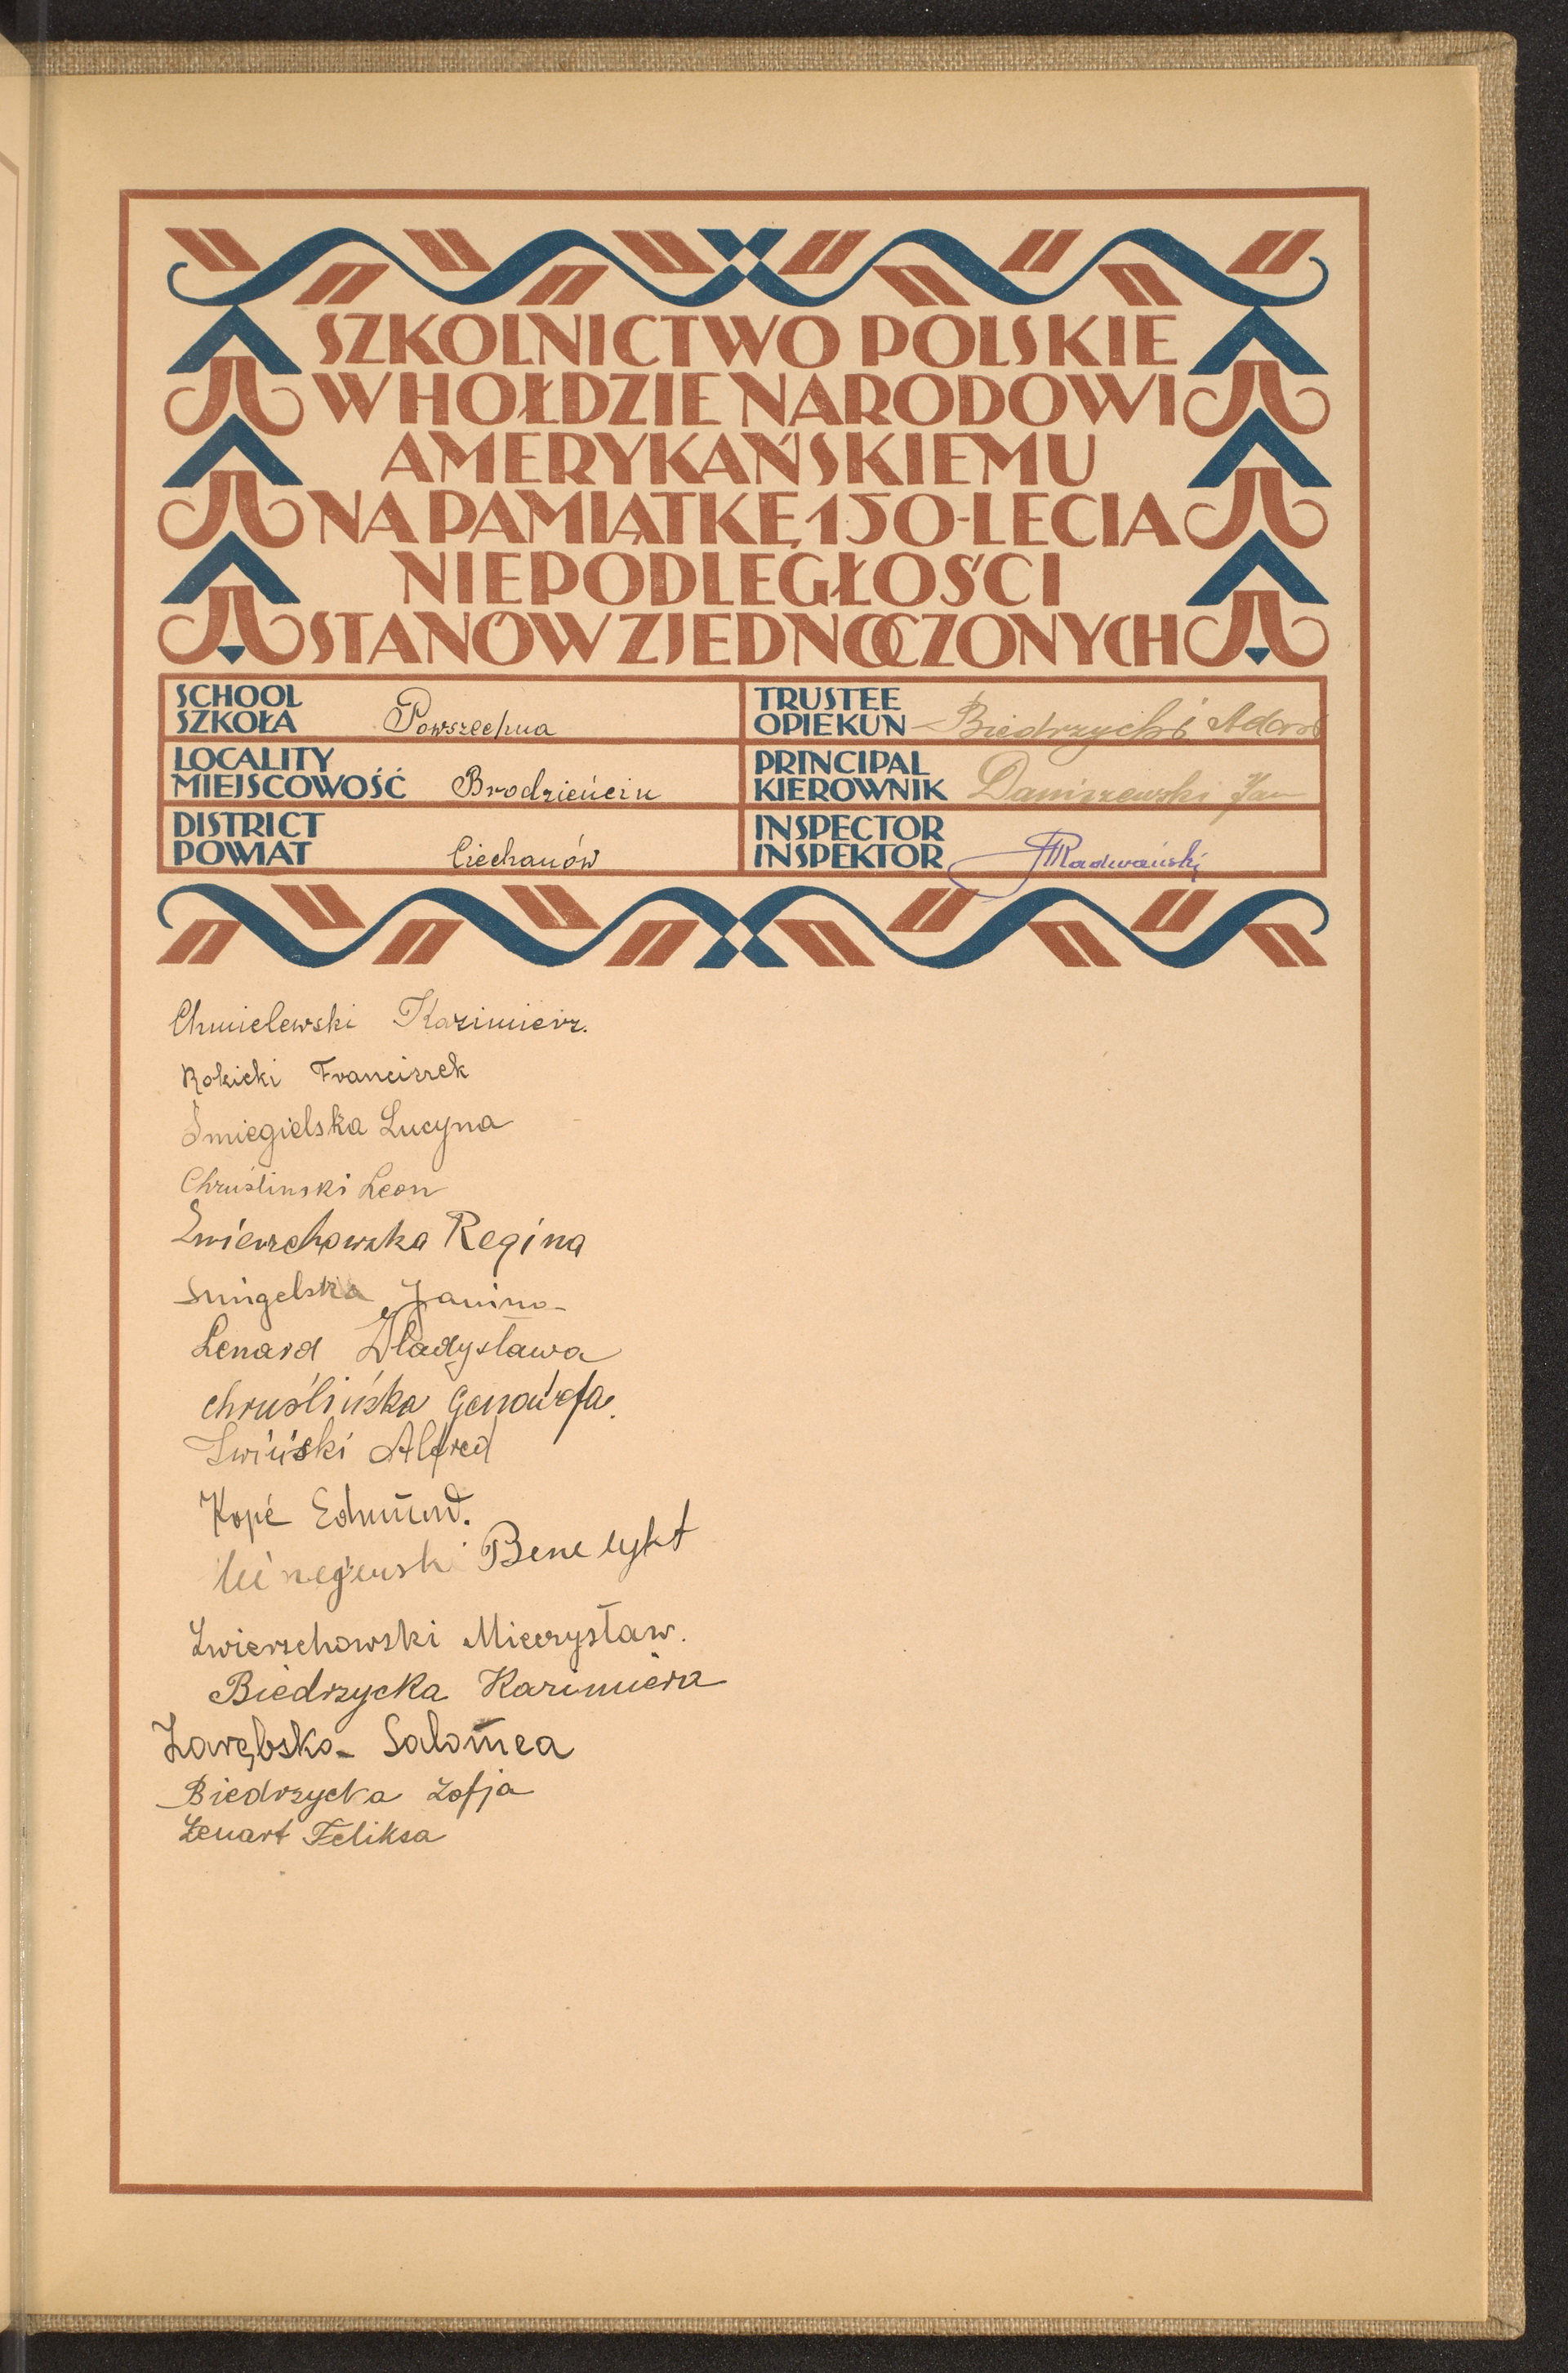 SZKOLNICTWO POLSKIE
W HOŁDZIE NARODOWI
AMERYKAŃSKIEMU
NA PAMIĄTKĘ 150-LECIA
NIEPODLEGŁOŚCI
STANÓW ZJEDNOCZONYCH
SCHOOL
SZKOŁA Powszechna
TRUSTEE
OPIEKUN Biedrzycki Adam
LOCALITY
MIEJSCOWOŚĆ Brodzięcin
PRINCIPAL
KIEROWNIK Daniszewski Jan
DISTRICT
POWIAT Ciechanów
INSPECTOR
INSPEKTOR Radwański
Chmielewski Kazimierz.
Rokicki Franciszek
Śmiegielska Lucyna
Chruślinski Leon
Zwierzchowska Regina
Smigelska Janina
Lenard Władysława
chruślińska Genowefa.
Lwiński Alfred
Kopć Edmund.
Benedykt
Zwierzchowski Mieczysław.
Biedrzycka Kazimiera
Zarębska Salomea
Biedrzycka Zofja
Lenart Feliksa